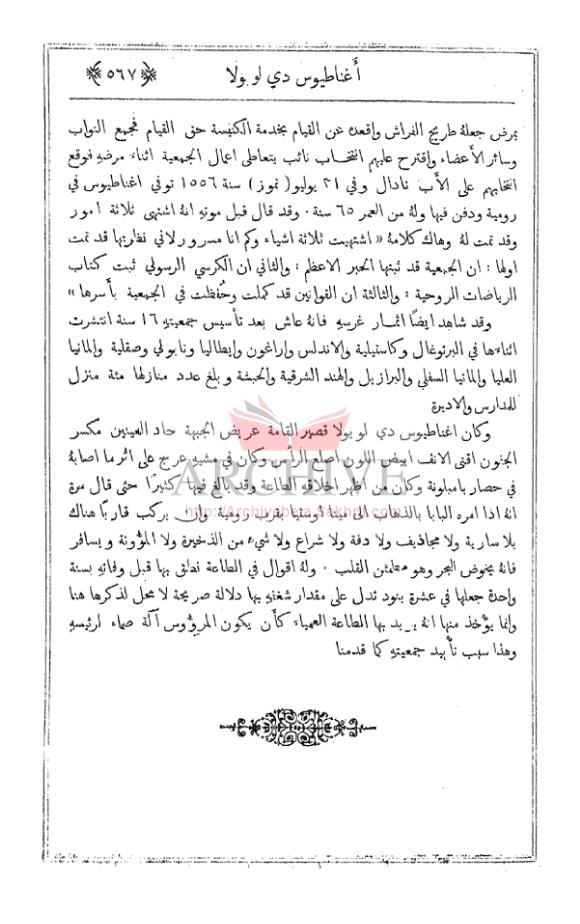 أغناطيوس دي لويولا ﴿٥٦٧﴾
بمرض جعلهُ طريح الفراش واقعدهُ عن القيام بخدمة الكنيسة حق القيام فجمع النواب
وسائر الأعضاء واقترح عليهم انتخاب نائب يتعاطى اعمال الجمعية اثناء مرضهِ فوقع
انتخابهم على الأب نادال وفي ٣١ يوليو ( تموز ) سنة ١٥٥٦ توفي اغناطيوس في
رومية ودفن فيها ولهُ من العمر ٦٥ سنة ٠ وقد قال قبل موتهِ انهُ اشتهى ثلاثة امور
وقد تمت لهُ وهاك كلامهُ « اشتهيت ثلاثة اشياء وكم انا مسرور لاني نظرتها قد تمت
اولها : ان الجمعية قد ثبتها الحبر الاعظم : والثاني ان الكرسي الرسولي ثبت كتاب
الرياضات الروحية : والثالثة ان القوانين قد كملت وحُفظت في الجمعية بأسرها »
وقد شاهد ايضًا اثمار غرسهِ فانهُ عاش بعد تأسيس جمعيتهِ ١٦ سنة انتشرت
اثناءها في البرتوغال وكاستيلية والاندلس واراغون وايطاليا ونابولي وصقلية والمانيا
العليا والمانيا السفلى والبرازيل والهند الشرقية والحبشة و بلغ عدد منازلها مئة منزل
للمدارس والاديرة
وكان اغناطيوس دي لويولا قصير القامة عريض الجبهة حاد العينين مكسر
الجفون اقنى الانف ابيض اللون اصلع الرأس وكان في مشيهِ عرج على اثر ما اصابهُ
في حصار بامبلونة وكان من اظهر اخلاقهِ الطاعة وقد بالغ فيها كثيرًا حتى قال مرة
ARCHIVE
http://Archivebeta.Sakhrit.com
انهُ اذا امره البابا بالذهاب الى مينا اوستيا بقرب رومية وان يركب قاربًا هناك
بلا سارية ولا مجاذيف ولا دفة ولا شراع ولا شيء من الذخيرة ولا المؤونة و يسافر
فانهُ يخوض البحر وهو مطمئن القلب ٠ ولهُ اقوال في الطاعة نطق بها قبل وفاتهِ بسنة
واحدة جعلها في عشرة بنود تدل على مقدار شغفهِ بها دلالة صريحة لا محل لذكرها هنا
وانما يؤخذ منها انهُ يريد بها الطاعة العمياء كأن يكون المرؤوس آلة صماء لرئيسهِ
وهذا سبب تأييد جمعيتهِ كما قدمنا